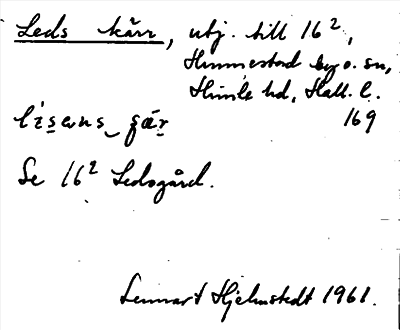 Leds kärr, utj. till 16²,
Hunnestad by o. sn,
Himle hd, Hall. l.
169
Se 16² Ledsgård.
Lennart Hjelmstedt 1961.